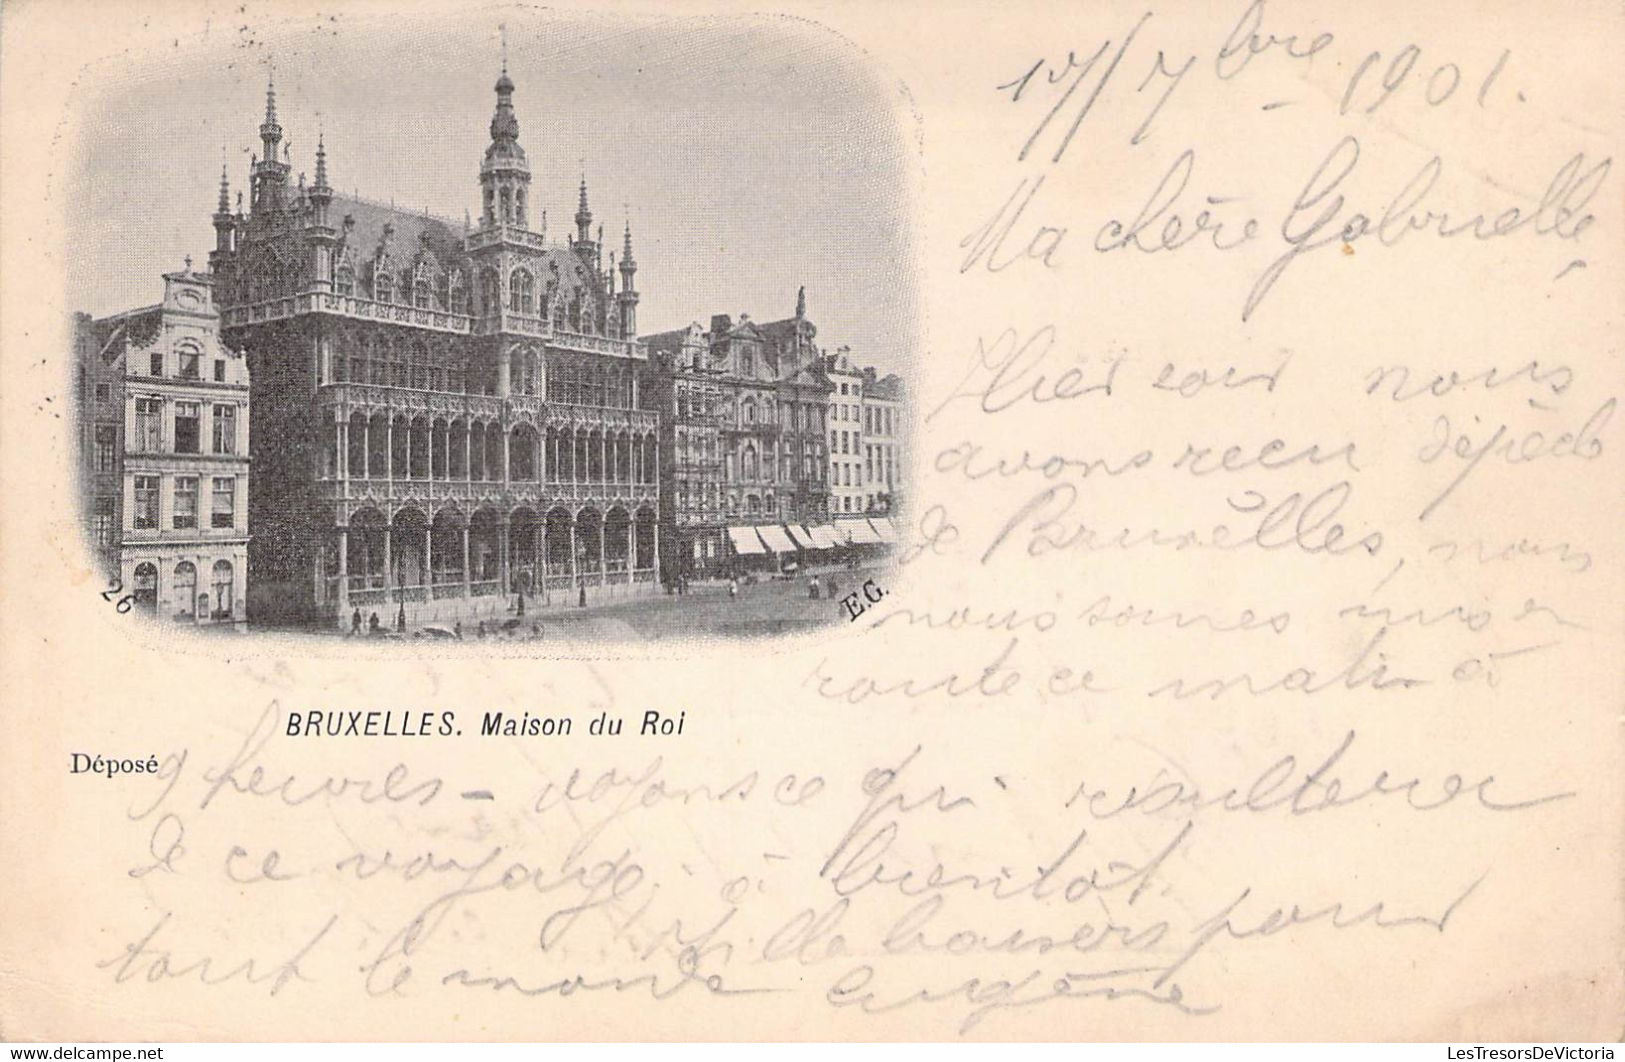 17/7bre - 1901.
Ma chère Gabrielle
Hier soir nous
avons recu dépêch
de Bruxèlles, nous
nous somes mis en
route ce matin à
26
E.G.
BRUXELLES. Maison du Roi
Déposé
9 heures - voyons ce qui resultera
de ce voyage. à bientôt
Mille baisers pour
tout le monde Eugène
Delcampe.net
LesTresorsDeVictoria